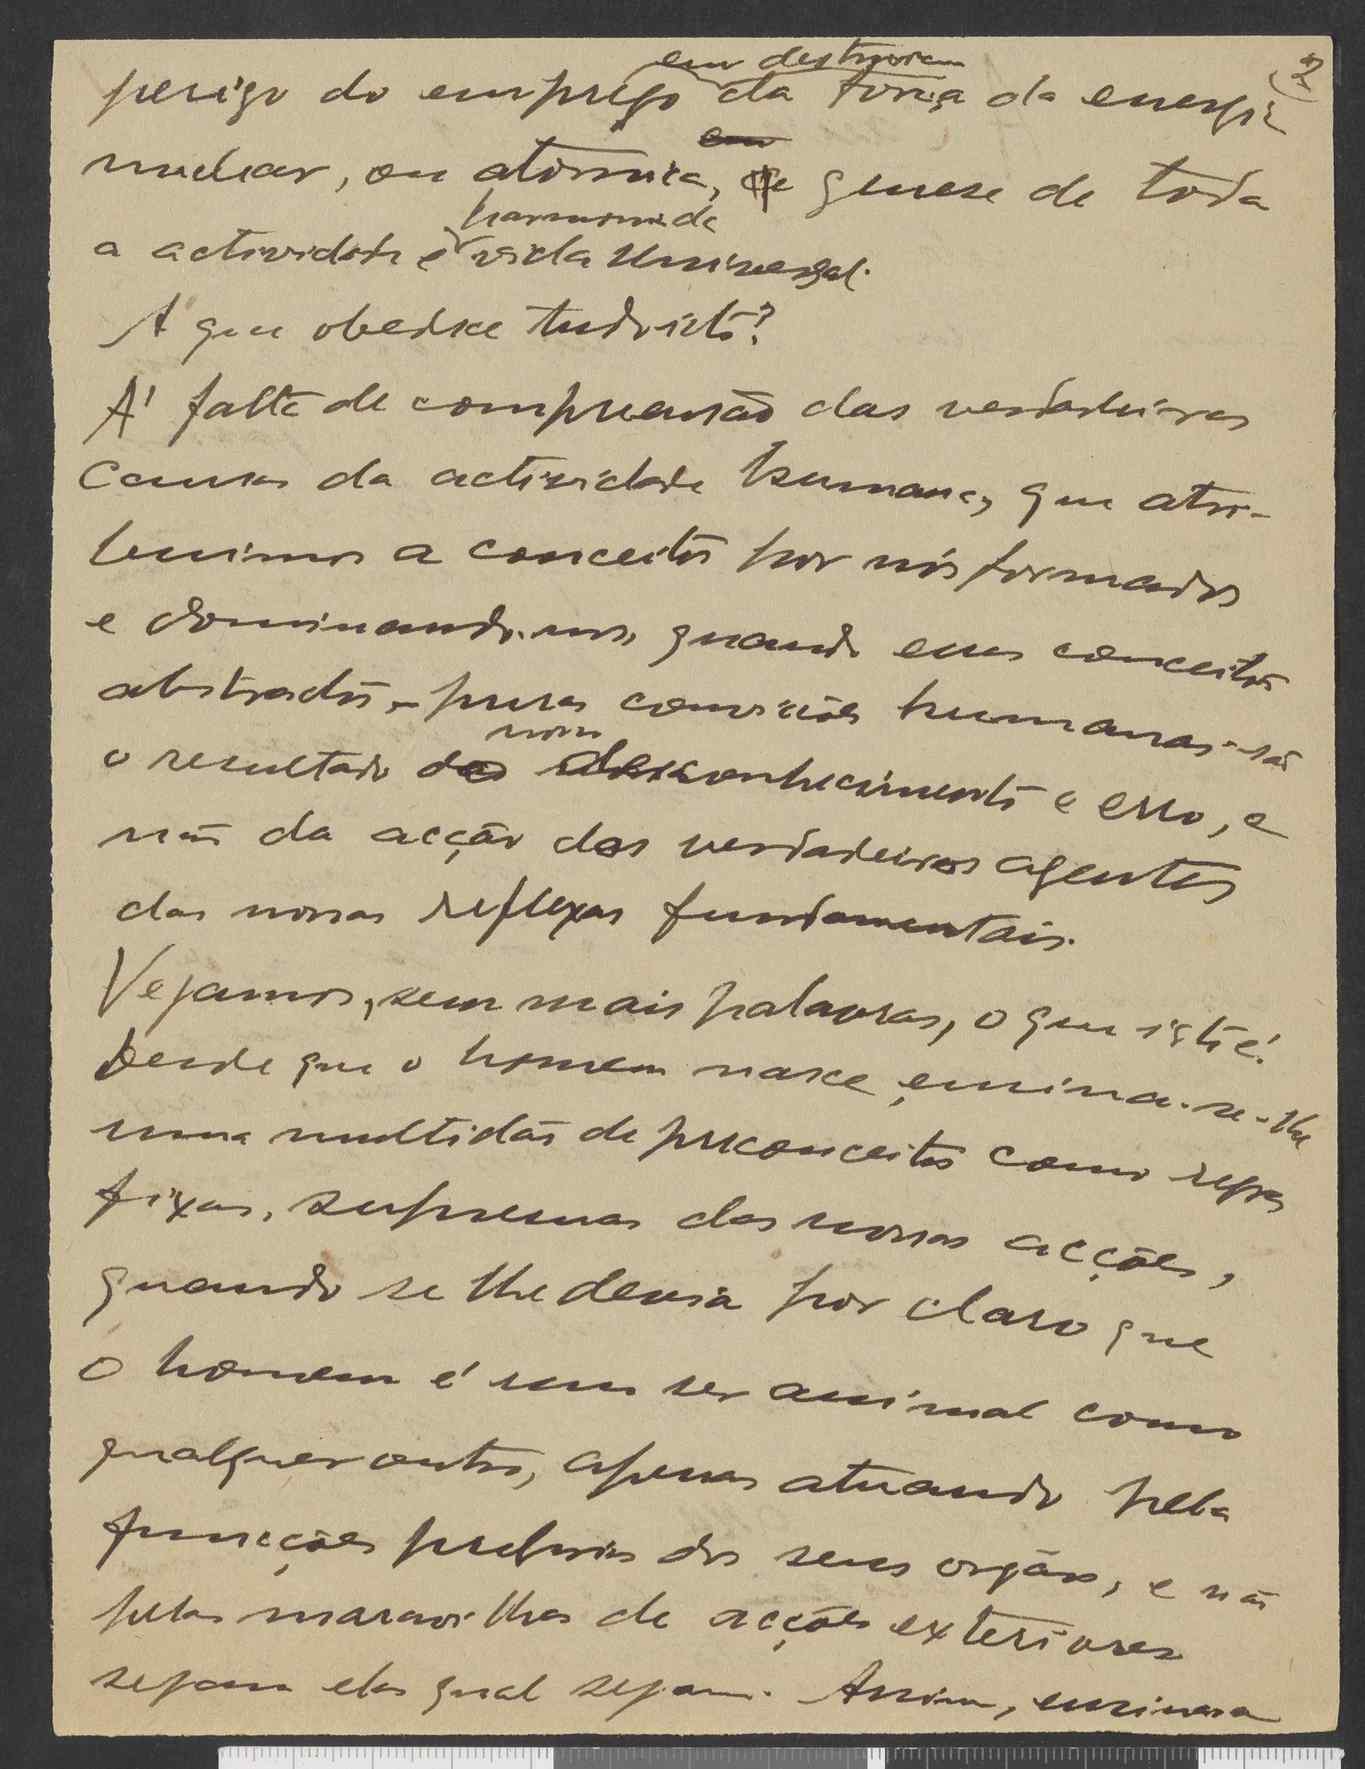 2
em destruirem
perigo do emprego da força da energia
em
nuclear, ou atomica, genese de toda
harmonia de
a actividade e vida Universal.
A que obedece tudo isto?
A' falta de compreensão das verdadeiras
causas da actividade humana, que atri-
buimos a conceitos por nós formados
e dominando-nos, quando esses conceitos
abstractos, - puras convicções humanas - são
nosso
o resultado do desconhecimento e erro, e
não da acção dos verdadeiros agentes
das nossas reflexas fundamentais.
Vejamos, sem mais palavras, o que isto é.
Desde que o homem nasce, ensina-se-lhe
uma multidão de preconceitos como regras
fixas, supremas das nossas acções,
quando se lhe devia pôr claro que
o homem é um ser animal como
qualquer outro, apenas atuando pela
funcções proprias dos seus orgãos, e não
pelas maravilhas de acções exteriores
sejam elas qual sejam. Assim,